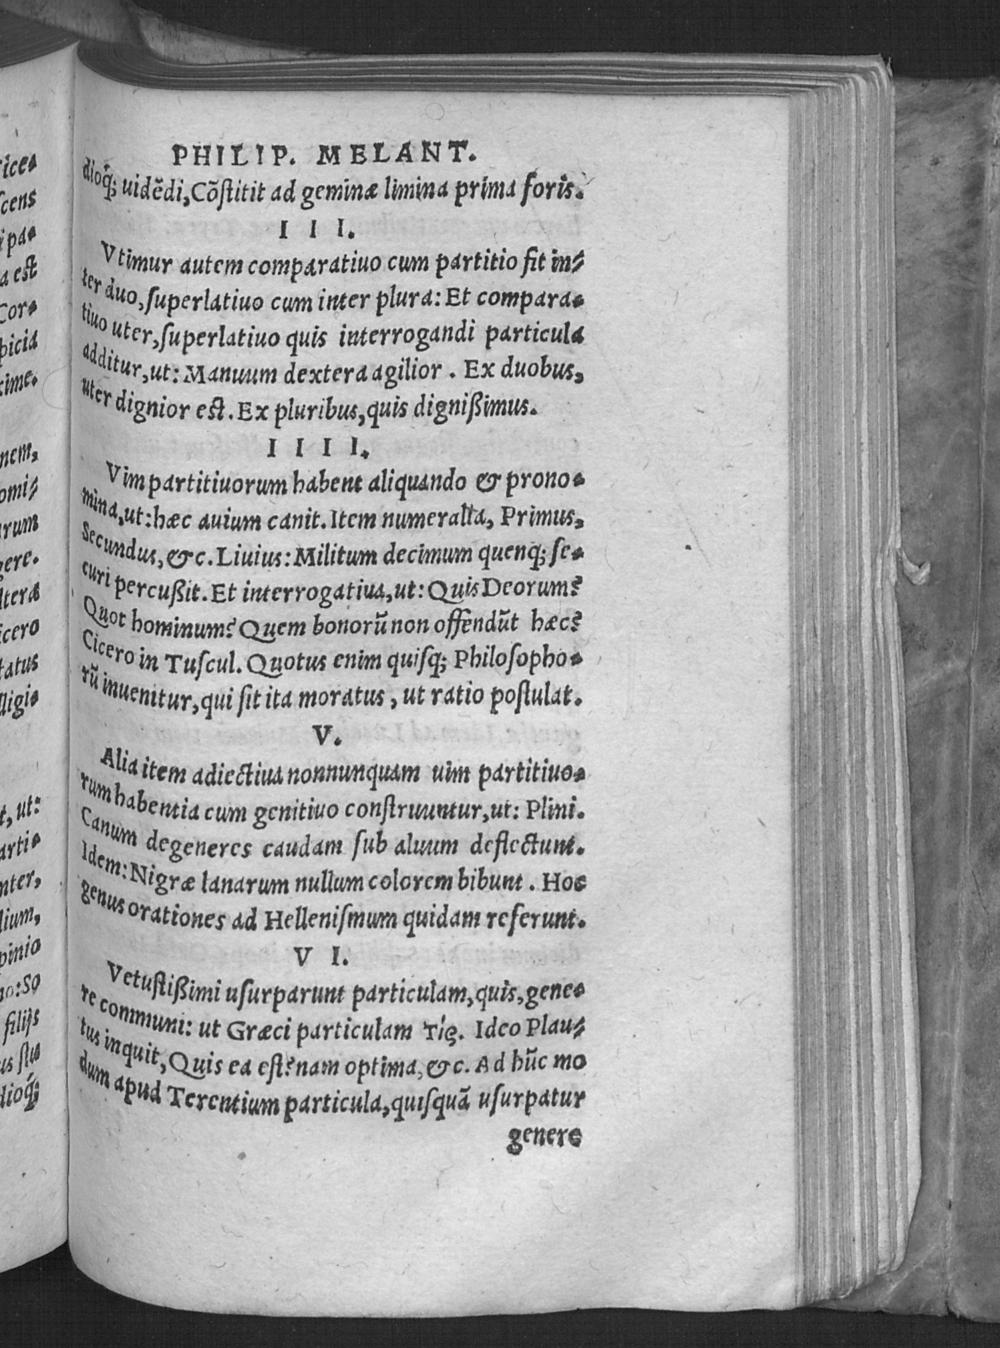 PHILIP. MELANT.
dioq́; uidēdi, Cōſtitit ad geminæ limina prima foris.
I I I.
Vtimur autem comparatiuo cum partitio fit in⸗
ter duo, ſuperlatiuo cum inter plura: Et compara⸗
tiuo uter, ſuperlatiuo quis interrogandi particula
additur, ut: Manuum dextera agilior. Ex duobus,
uter dignior est. Ex pluribus, quis dignißimus.
I I I I.
Vim partitiuorum habent aliquando & prono⸗
mina, ut: hæc auium canit. Item numeralia, Primus,
Secundus, &c. Liuius: Militum decimum quenq; ſe⸗
curi percußit. Et interrogatiua, ut: Quis Deorum?
Quot hominum? Quem bonorū non offendūt hæc?
Cicero in Tuſcul. Quotus enim quiſq; Philoſopho⸗
rū inuenitur, qui ſit ita moratus, ut ratio poſtulat.
V.
Alia item adiectiua nonnunquam uim partitiuo⸗
rum habentia cum genitiuo conſtruuntur, ut: Plini.
Canum degeneres caudam ſub aluum deflectunt.
Idem: Nigræ lanarum nullum colorem bibunt. Hoc
genus orationes ad Helleniſmum quidam referunt.
V I.
Vetuſtißimi uſurparunt particulam, quis, gene⸗
re communi: ut Græci particulam τίς. Ideo Plau⸗
tus inquit, Quis ea est? nam optima, &c. Ad hūc mo
dum apud Terentium particula, quiſquā uſurpatur
genere
rice⸗
ſcens
ipa⸗
a est
Cor⸗
picia
xime.
nem,
omi⸗
arum
gere.
ltera
icero
tatus
lligi⸗
t, ut:
arti⸗
nter,
lium,
pinio
no: So
filijs
us ſtu
dioq́;